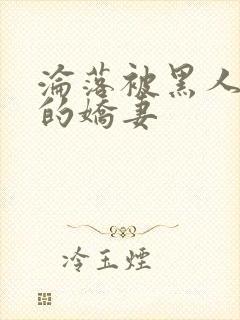 淪落被黑人
的嬌妻
冷玉煙